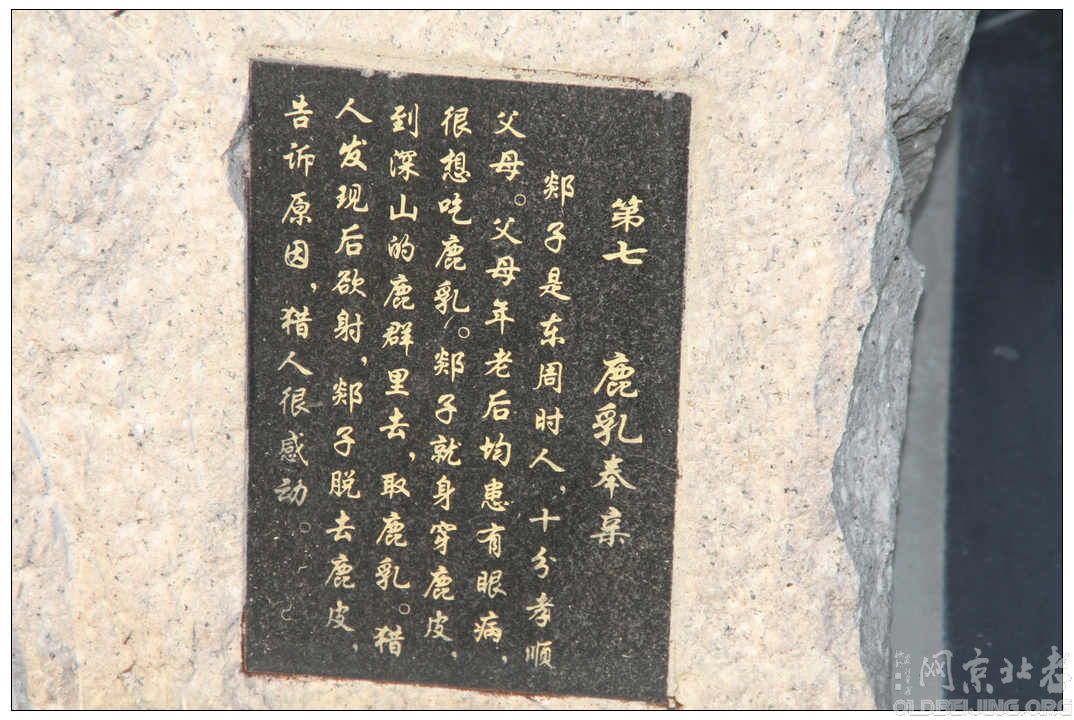 第七 鹿乳奉亲
郯子是东周时人，十分孝顺
父母。父母年老后均患有眼病，
很想吃鹿乳。郯子就身穿鹿皮，
到深山的鹿群里去，取鹿乳。猎
人发现后欲射，郯子脱去鹿皮，
告诉原因，猎人很感动。
老北京网
OLDBEIJING.ORG